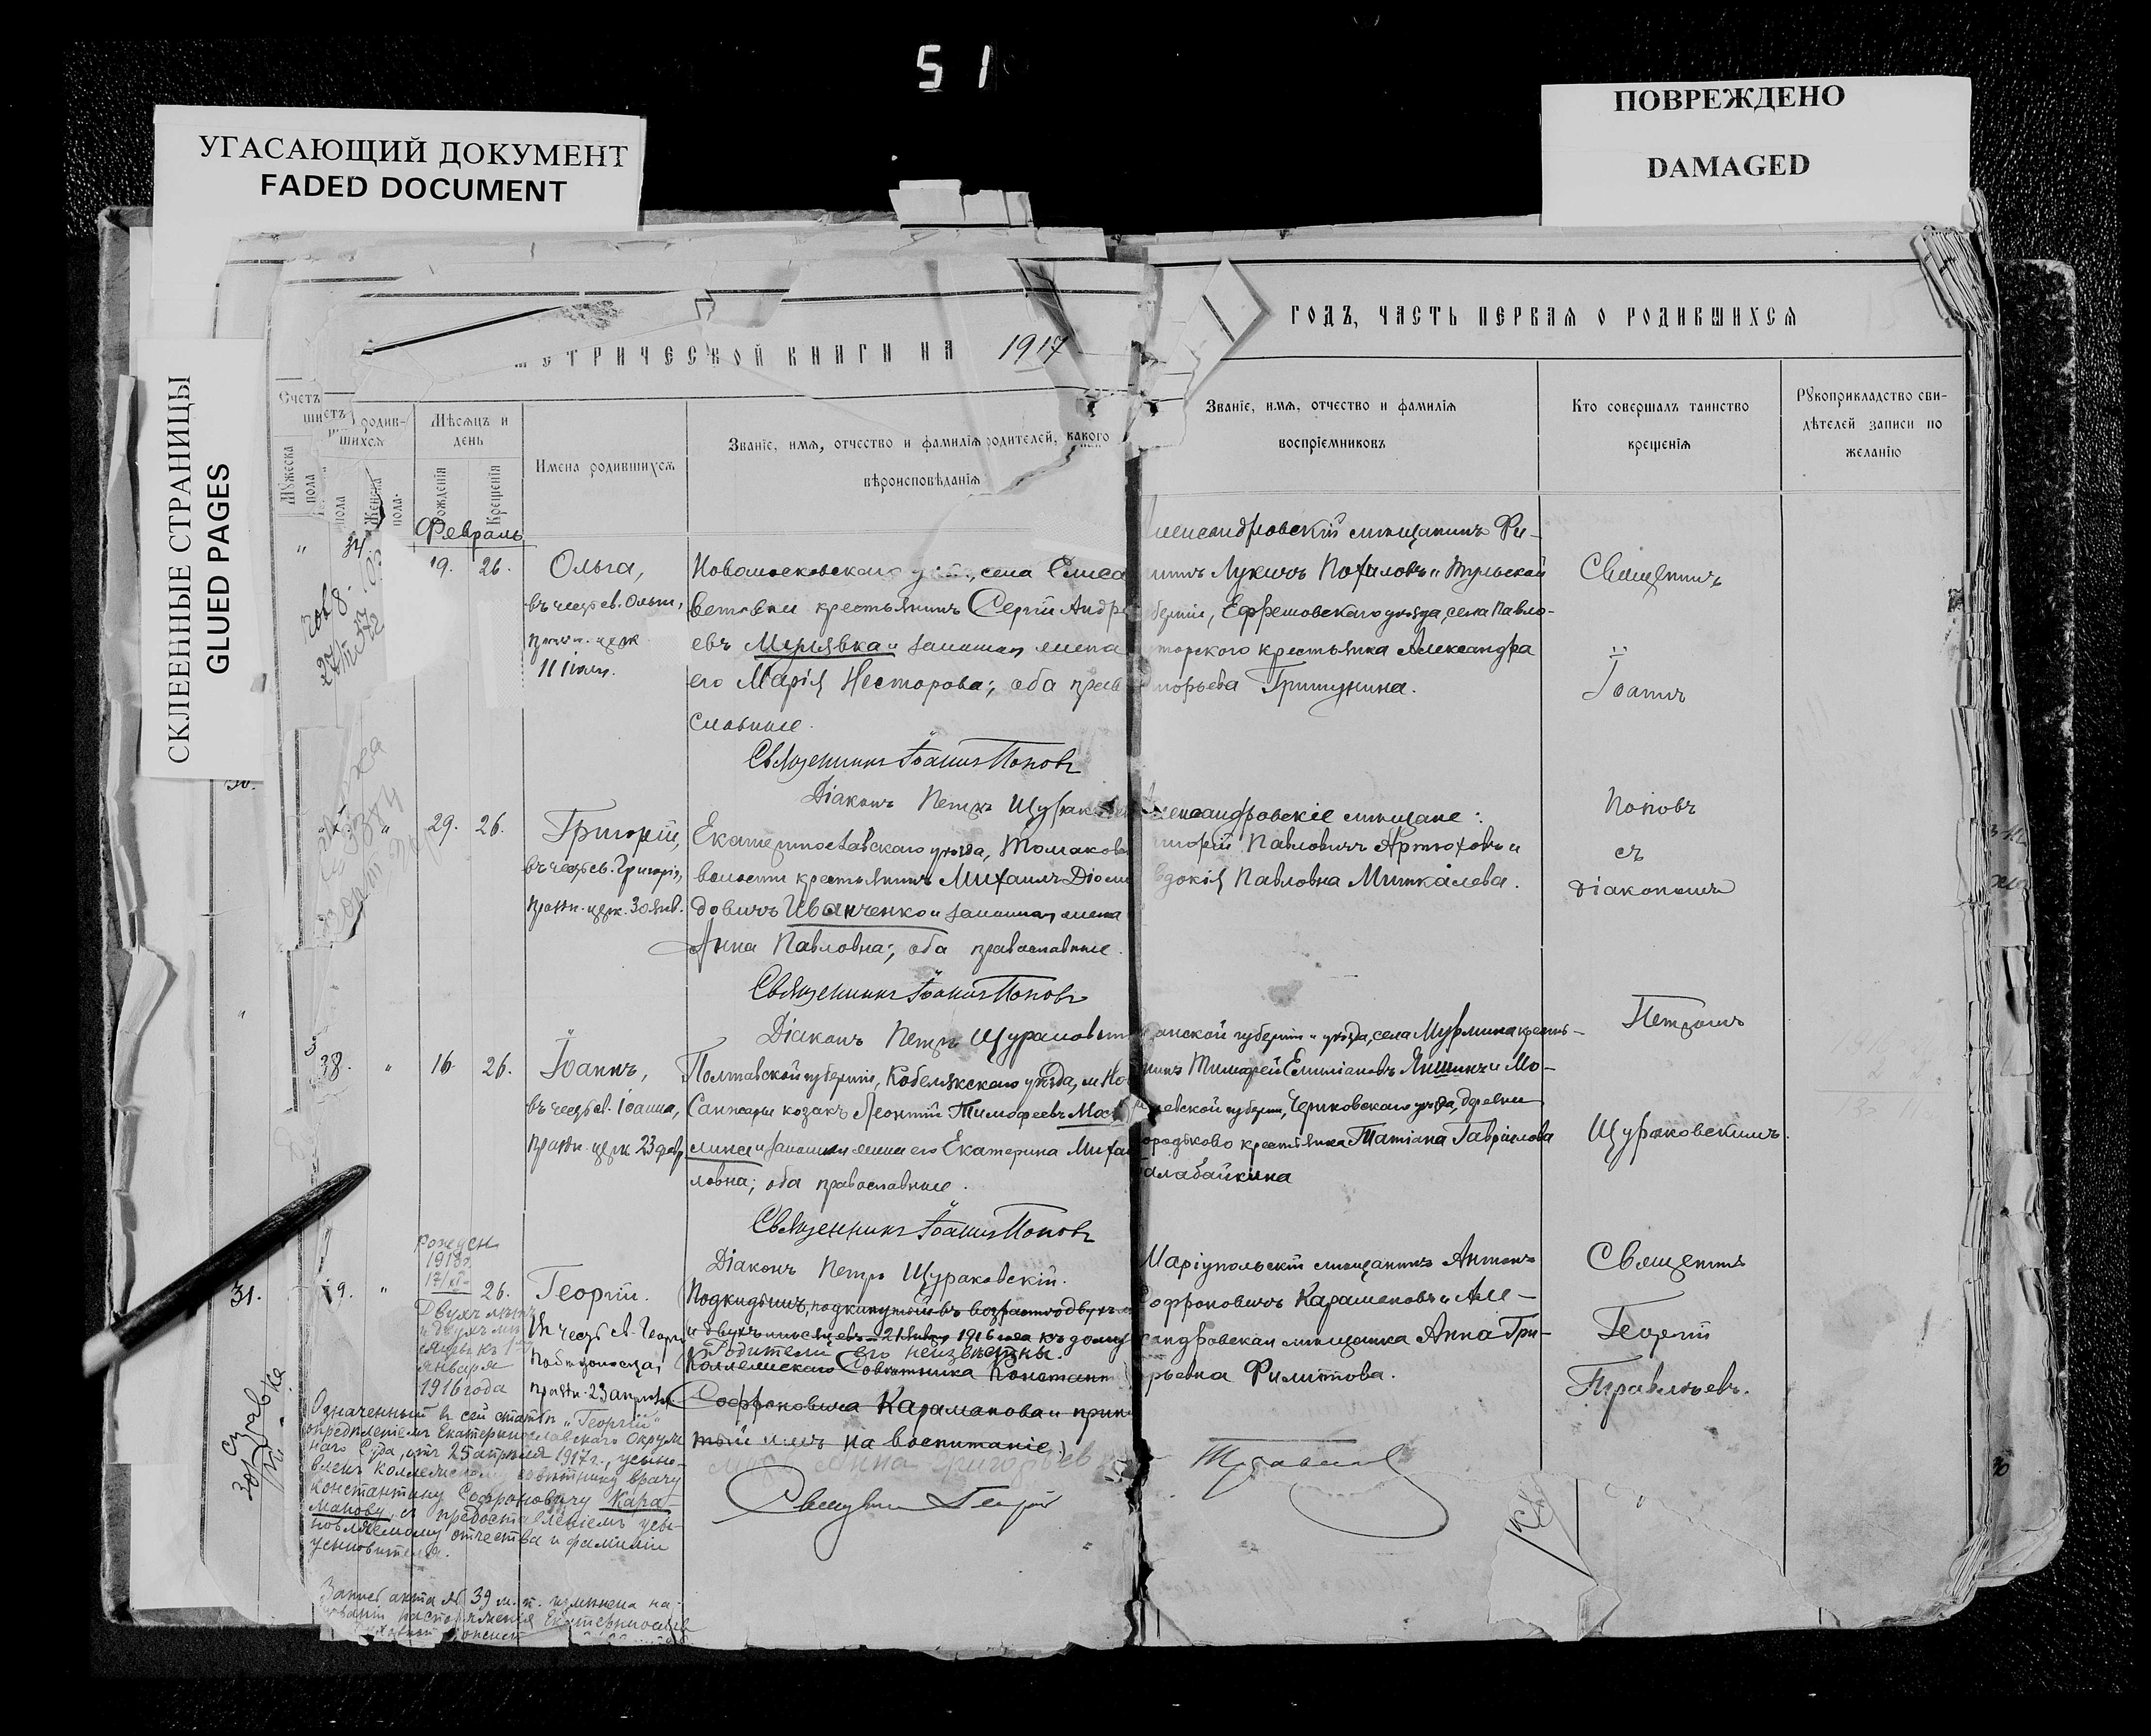 51
УГАСАЮЩИЙ ДОКУМЕНТ
FADED DOCUMENT
ПОВРЕЖДЕНО
DAMAGED
СКЛЕЕННЫЕ СТРАНИЦЫ
GLUED PAGES
МЕТРИЧЕСКОЙ КНИГИ НА 1917
ГОДЪ, ЧАСТЬ ПЕРВАЯ О РОДИВШИХСЯ
Счетъ
родив-
шихся
Мужеска
пола
Женска
пола.
Мѣсяцъ и
день
рожденія
Крещенія
Имена родившихся
Званіе, имя, отчество и фамилія родителей, какого
вѣроисповѣданія
Званіе, имя, отчество и фамилія
воспріемниковъ
Кто совершалъ таинство
крещенія
Рукоприкладство сви-
дѣтелей записи по
желанію
Февраль
" 34 19. 26.
Ольга,
въ честь св. Ольги,
11 іюля.
Новомосковскаго села Елиса
ветовки крестьянинъ Сергій Андре
евъ Мурявка и законная жена
его Марія Несторова; оба прав
славные.
Священникъ Іоаннъ Поповъ
Діаконъ Петръ Щураковскій
лександровскій мѣщанинъ Фи-
липъ Лукичъ Поталовъ и Тульской
берніи, Ефремовскаго уѣзда, села Павло-
торского крестьянка Александра
Григорьева Гришунина.
Священникъ
Іоаннъ
Поповъ
съ
діакономъ
Петромъ
Щураковскимъ.
" 29. 26.
Григорій,
въ честь св. Григорія,
празн. церк. 30 янв.
Екатеринославскаго уѣзда, Томаков
волости крестьянинъ Михаилъ Діоми
довичъ Иванченко и законная жена
Анна Павловна; оба православные.
Священникъ Іоаннъ Поповъ
Діаконъ Петръ Щураковскій
лександровскіе мѣщане:
григорій Павловичъ Артюховъ и
вдокія Павловна Мишкалева.
38. " 16. 26.
Іоаннъ,
въ честь св. Іоанна,
празн. церк. 23 февр.
Полтавской губерніи, Кобелякскаго уѣзда, м. Но
Санжары козакъ Леонтій Тимофеевъ Мос
и законная жена его Екатерина Михаи
ловна; оба православные.
Священникъ Іоаннъ Поповъ
Діаконъ Петръ Щураковскій.
анской губерніи и уѣзда, села Мурмина кресть-
нинъ Тимофей Емиліановъ Яшинъ и Мо-
левской губерніи, Чериковскаго уѣзда, деревни
ородьково крестьянка Татіана Гавріилова
алабайкина
31.
9. " 26.
рожден
1913г
17/XI
Двухъ лѣтъ
и двухъ мѣ
января
1916 года
Георгій.
Въ честь св. Георгія
Побѣдоносца,
празн. 23 апрѣля.
Подкидышъ, подкинутый въ возрастѣ двухъ л
и двухъ мѣсяцевъ 21 Января 1916 года къ дому
Родители его неизвѣстны.
Коллежскаго Совѣтника Констант
Софроновича Караманова и прин
тый имъ на воспитаніе.
Маріупольскій мѣщанинъ Антонъ
Софроновичъ Карамановъ и Але-
сандровская мѣщанка Анна Гри-
рьевна Филитова.
Священникъ
Георгій
Правлоьевъ.
Священникъ Георгій
Справка
Означенный въ сей статьѣ "Георгій"
опредѣленіемъ Екатеринославскаго Окруж
наго Суда, отъ 25 апрѣля 1917 г., усыно-
вленъ коллежскому совѣтнику врачу
Константину Софроновичу Кара-
манову, съ предоставленіемъ усы-
новляемому отчества и фамиліи
усыновителя.
Запись акта № 39 м. п. измѣнена на
распоряженія Екатеринослав